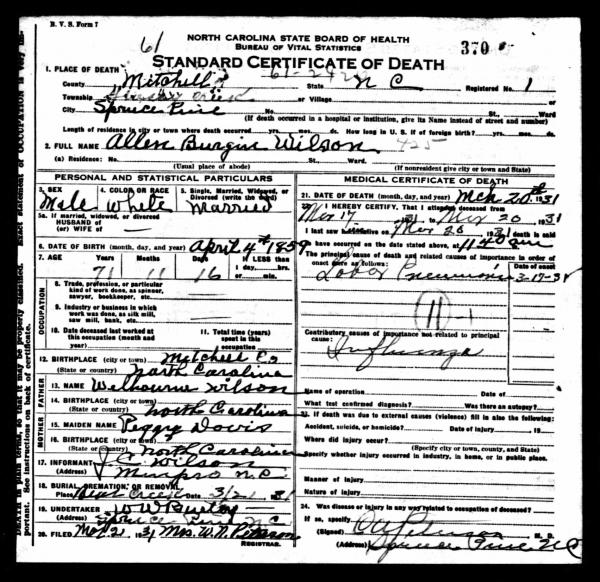 B. V. S. Form 7
NORTH CAROLINA STATE BOARD OF HEALTH
BUREAU OF VITAL STATISTICS
61
370
STANDARD CERTIFICATE OF DEATH
1. PLACE OF DEATH
County Mitchell State N C Registered No. 1
Township or Village
City Spruce Pine No. St., Ward
(If death occurred in a hospital or institution, give its Name instead of street and number)
Length of residence in city or town where death occurred yrs. mos. ds. How long in U. S. if of foreign birth? yrs. mos. ds.
2. FULL NAME Allen Burgin Wilson 425
(a) Residence: No. St., Ward.
(Usual place of abode) (If nonresident give city or town and State)
PERSONAL AND STATISTICAL PARTICULARS
3. SEX Male
4. COLOR OR RACE White
5. Single, Married, Widowed, or Divorced (write the word) Married
5a. If married, widowed, or divorced
HUSBAND of
(or) WIFE of
6. DATE OF BIRTH (month, day, and year) April 4th 1859
7. AGE Years 71 Months 11 Days 16 If LESS than 1 day, hrs. or min.
OCCUPATION
8. Trade, profession, or particular kind of work done, as spinner, sawyer, bookkeeper, etc.
9. Industry or business in which work was done, as silk mill, saw mill, bank, etc.
10. Date deceased last worked at this occupation (month and year)
11. Total time (years) spent in this occupation
12. BIRTHPLACE (city or town) Mitchell Co
(State or country) North Carolina
FATHER
13. NAME Welbourne Wilson
14. BIRTHPLACE (city or town)
(State or country) North Carolina
MOTHER
15. MAIDEN NAME Peggy Davis
16. BIRTHPLACE (city or town)
(State or country) North Carolina
17. INFORMANT Wilson
(Address) Minpro N.C.
18. BURIAL, CREMATION, OR REMOVAL
Place Bear Creek Date 3/21 31
19. UNDERTAKER W W Burleson
(Address) Spruce Pine N C
20. FILED Mar 21 31 Mrs. W. N. Peterson
REGISTRAR.
MEDICAL CERTIFICATE OF DEATH
21. DATE OF DEATH (month, day, and year) Mch 20th 1931
22. I HEREBY CERTIFY, That I attended deceased from
Mar 17 1931 to Mar 20 1931
I last saw him alive on Mar 20 1931 death is said
to have occurred on the date stated above, at 11 40 am
The principal cause of death and related causes of importance in order of
onset were as follows: Date of onset
Lobar Pneumonia 3-17-31
11-1
Contributory causes of importance not related to principal
cause:
Influenza
Name of operation Date of
What test confirmed diagnosis? Was there an autopsy?
23. If death was due to external causes (violence) fill in also the following:
Accident, suicide, or homicide? Date of injury 19
Where did injury occur?
(Specify city or town, county, and State)
Specify whether injury occurred in industry, in home, or in public place.
Manner of injury
Nature of injury
24. Was disease or injury in any way related to occupation of deceased?
If so, specify
(Signed) Peterson M. D.
(Address) Spruce Pine N C